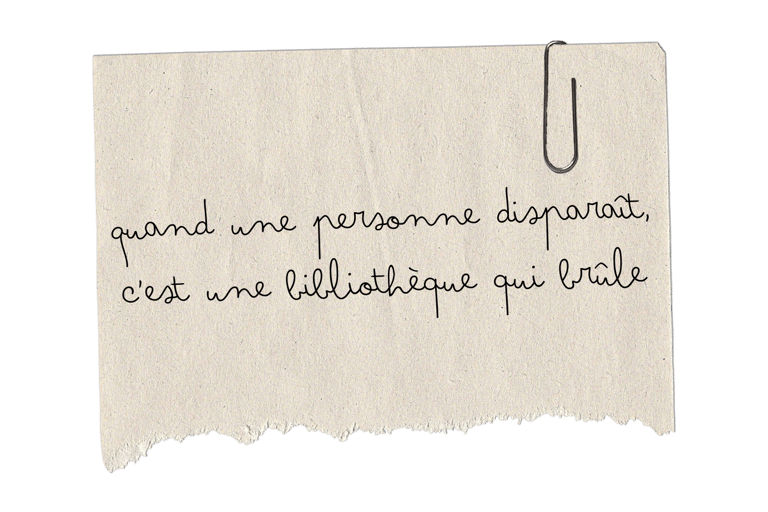 quand une personne disparaît,
c'est une bibliothèque qui brûle